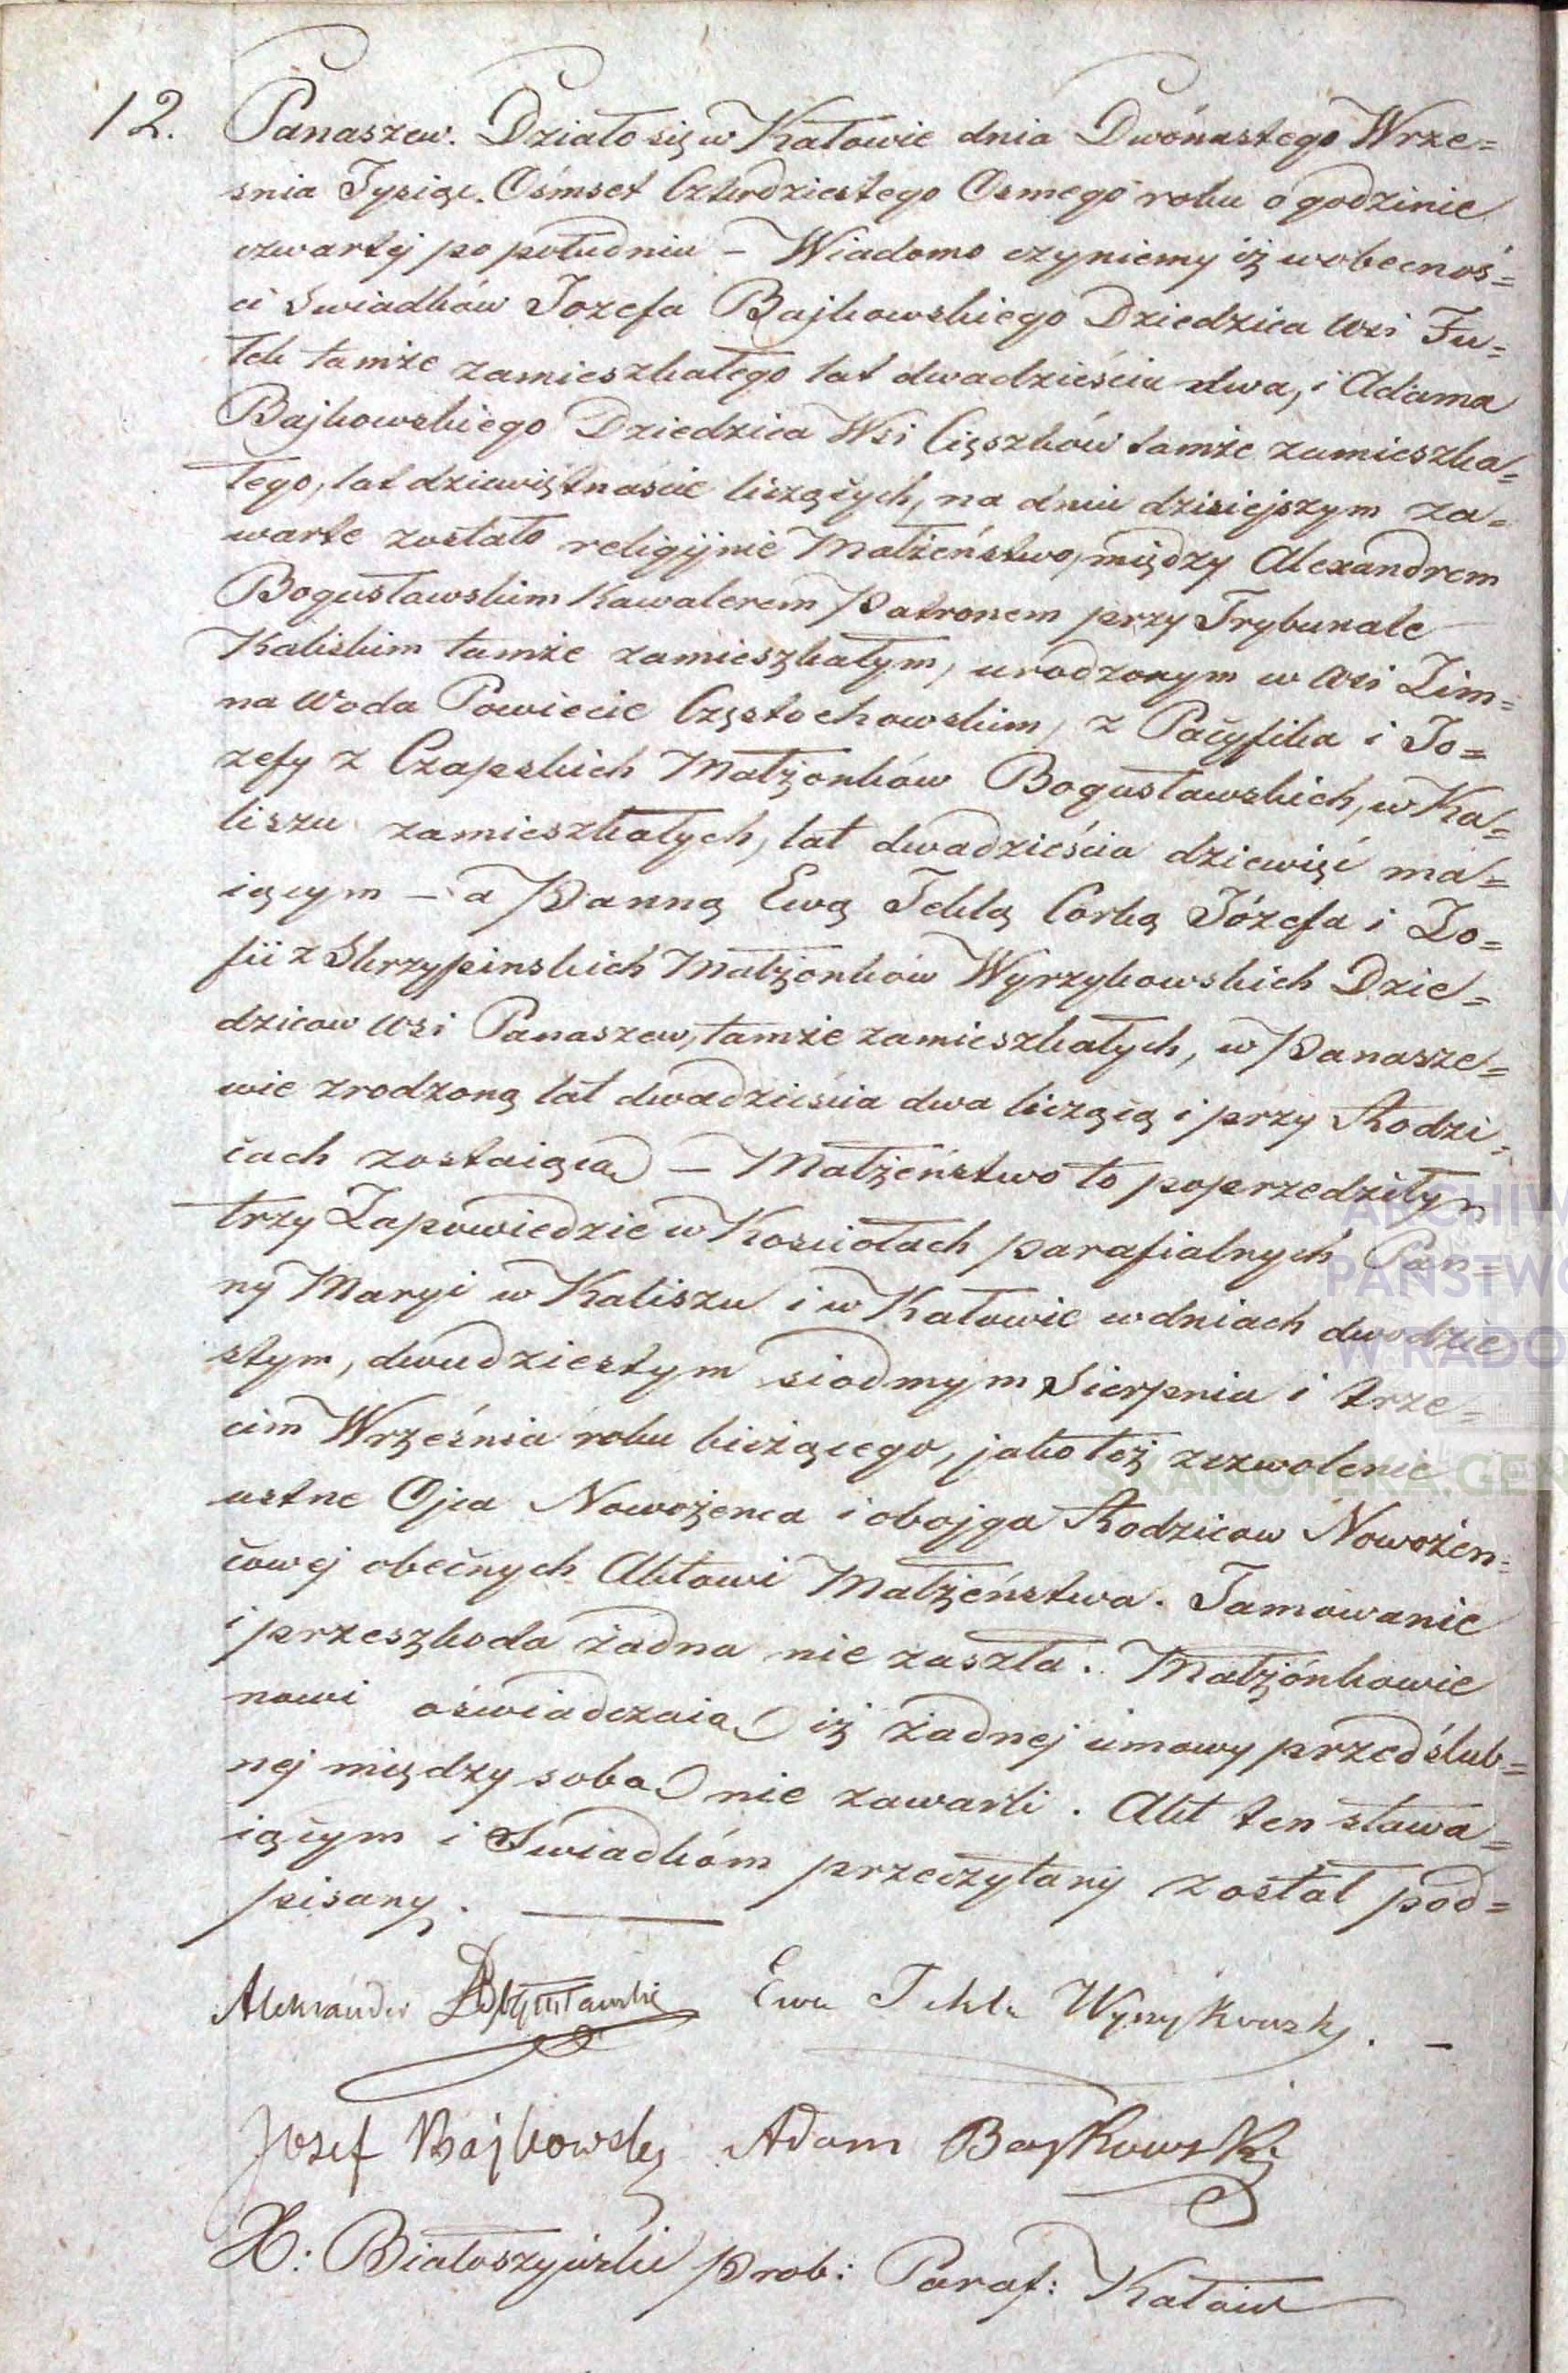 12. Panaszew. Działo się w Kałowie dnia Dwónastego Wrze=
snia Tysiąc. Ośmset Czterdziestego Osmego roku o godzinie
czwartéj po południu – Wiadomo czyniemy iż w obecnoś=
ci Swiadków Jozefa Bajkowskiego Dziedzica wsi Fu=
lek tamże zamieszkałego lat dwadzieścia dwa, i Adama
Bajkowskiego Dziedzica Wsi Cięszków tamże zamieszka=
łego, lat dziewiętnaście liczących, na dniu dzisiejszym za=
warte zostało religijnie Małżeństwo, między Alexandrem
Bogusławskim Kawalerem Patronem przy Trybunale
Kaliskim tamże zamieszkałym, urodzonym w wsi Zim=
na woda Powiecie Częstochowskim, z Pacyfika i Jo=
zefy z Czapskich Małżonków Bogusławskich, w Ka=
liszu zamieszkałych, lat dwadzieścia dziewięć ma=
iącym – a Panną Ewą Teklą Corką Józefa i Zo=
fii z Skrzypinskich Małżonków Wyrzykowskich Dzie=
dzicow wsi Panaszew, tamże zamieszkałych, w Panasze=
wie zrodzoną lat dwadzieścia dwa liczącą i przy Rodzi=
cach zostaiącą – Małżeństwo to poprzedziły
trzy Zapowiedzie w Kościołach parafialnych Pan=
ny Maryi w Kaliszu i w Kałowie w dniach dwodzie
stym, dwudziestym siodmym Sierpnia i trze=
cim Września roku bieżącego, jako też zezwolenie
ustne Ojca Nowożenca i obojga Rodzicow Nowożen=
cowéj obecnych Aktowi Małżeństwa. Tamowanie
i przeszkoda żadna nie zaszła. Małżónkowie
nowi oświadczaią iż żadnej umowy przedślub=
nej między sobą nie zawarli. Akt ten stawa=
iącym i Swiadkóm przeczytany został pod=
pisany.
Aleksander Bogusławski Ewa Tekla Wyrzykowska. –
Jozef Bajkowski Adam Bajkowski
X: Białoszyński Prob: Paraf: Kałow
ARCHIW
PAŃSTWO
W RADO
SKANOTEKA.GEN